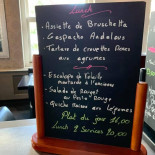 Lunch
- Assiette de Bruschetta
- Gaspacho Andalous
- Tartare de crevettes roses
aux agrumes
- Escalope de Volaille
moutarde à l'ancienne
- Salade de Rouget
au Pesto Rouge
- Quiche Maison aux Légumes
Plat du jour 14,00
Lunch 2 Services 20,00